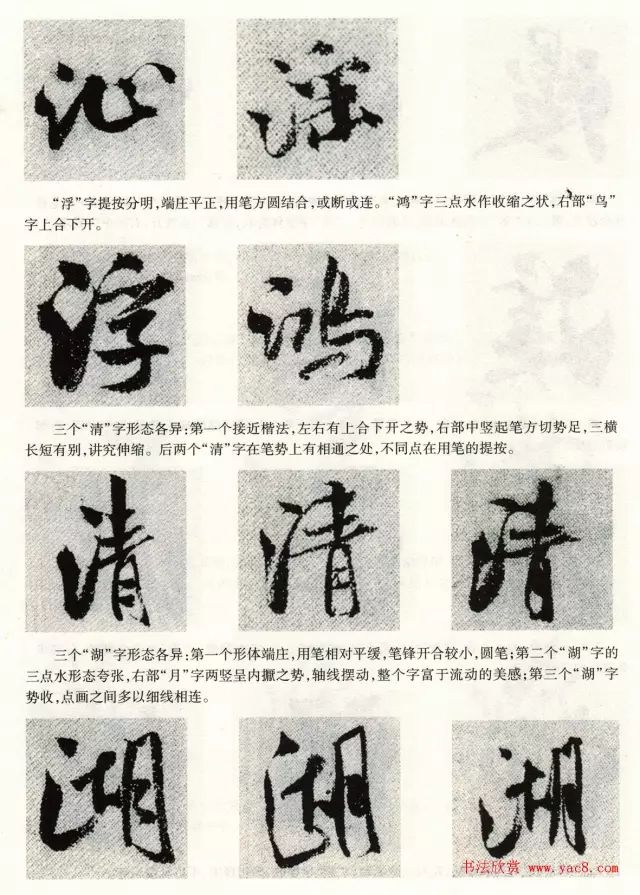 沁 淫
“浮”字提按分明,端庄平正,用笔方圆结合,或断或连。“鸿”字三点水作收缩之状,右部“鸟”
字上合下开。
浮 鸿
三个“清”字形态各异:第一个接近楷法,左右有上合下开之势,右部中竖起笔方切势足,三横
长短有别,讲究伸缩。后两个“清”字在笔势上有相通之处,不同点在用笔的提按。
清 清 清
三个“湖”字形态各异:第一个形体端庄,用笔相对平缓,笔锋开合较小,圆笔;第二个“湖”字的
三点水形态夸张,右部“月”字两竖呈内擫之势,轴线摆动,整个字富于流动的美感;第三个“湖”字
势收,点画之间多以细线相连。
湖 湖 湖
书法欣赏 www.yac8.com